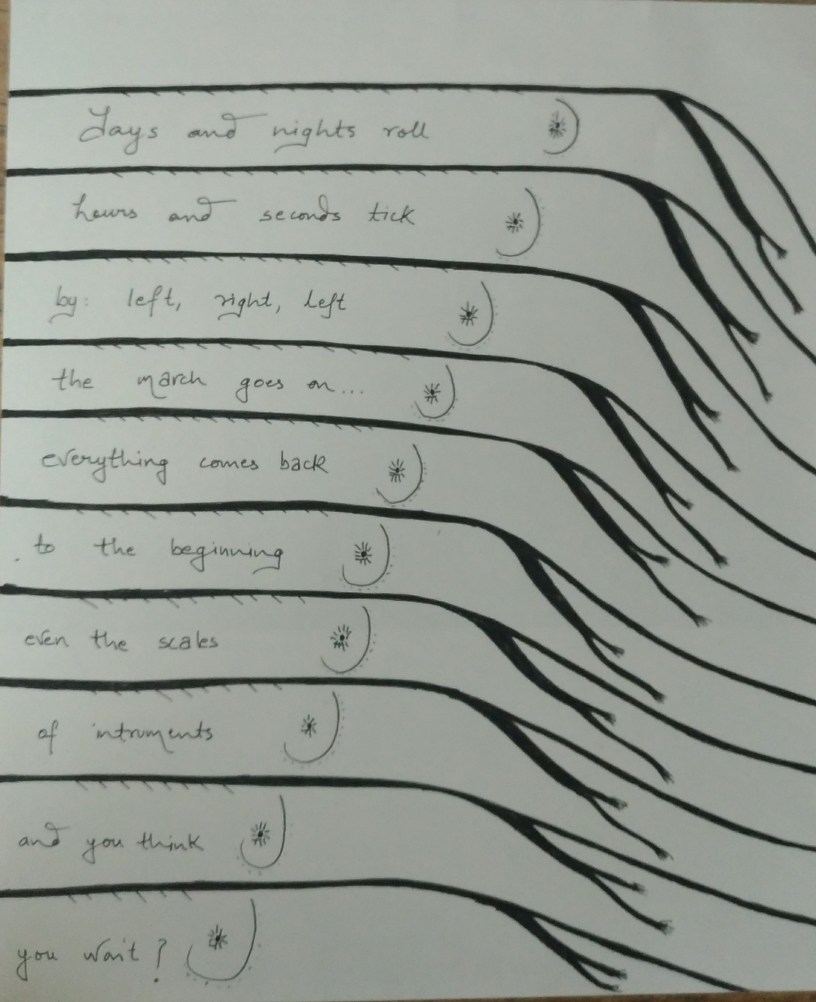 Days and nights roll
hours and seconds tick
by: left, right, left
the march goes on...
everything comes back
to the beginning
even the scales
of intruments
and you think
you wait?